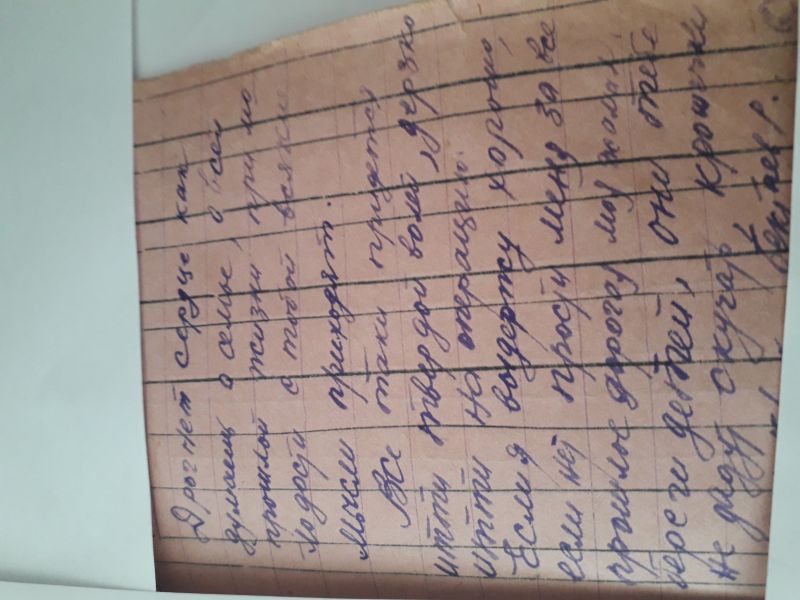 Дрогнет сердце как
думаеш о семье, о всей
прошлой жизни, при мо
лодости с тобой всякие
мысли приходят.
Все таки придется
итти твердой волей, дерзко
итти на операцию.
Если я выдержу хорошо,
если нет прости меня за все
прошлое дорогая моя жоная,
береги детей, они тебе
не дадут скучать крошечки